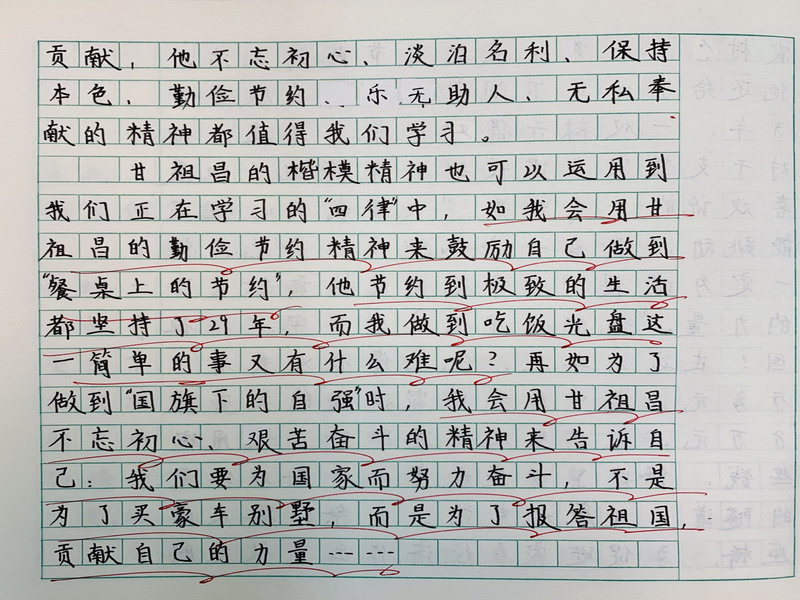 贡献，他不忘初心、淡泊名利、保持
本色，勤俭节约、乐于助人、无私奉
献的精神都值得我们学习。
甘祖昌的楷模精神也可以运用到
我们正在学习的“四律”中，如我会用甘
祖昌的勤俭节约精神来鼓励自己做到
“餐桌上的节约”，他节约到极致的生活
都坚持了29年，而我做到吃饭光盘这
一简单的事又有什么难呢？再如为了
做到“国旗下的自强”时，我会用甘祖昌
不忘初心、艰苦奋斗的精神来告诉自
己：我们要为国家而努力奋斗，不是
为了买豪车别墅，而是为了报答祖国，
贡献自己的力量……